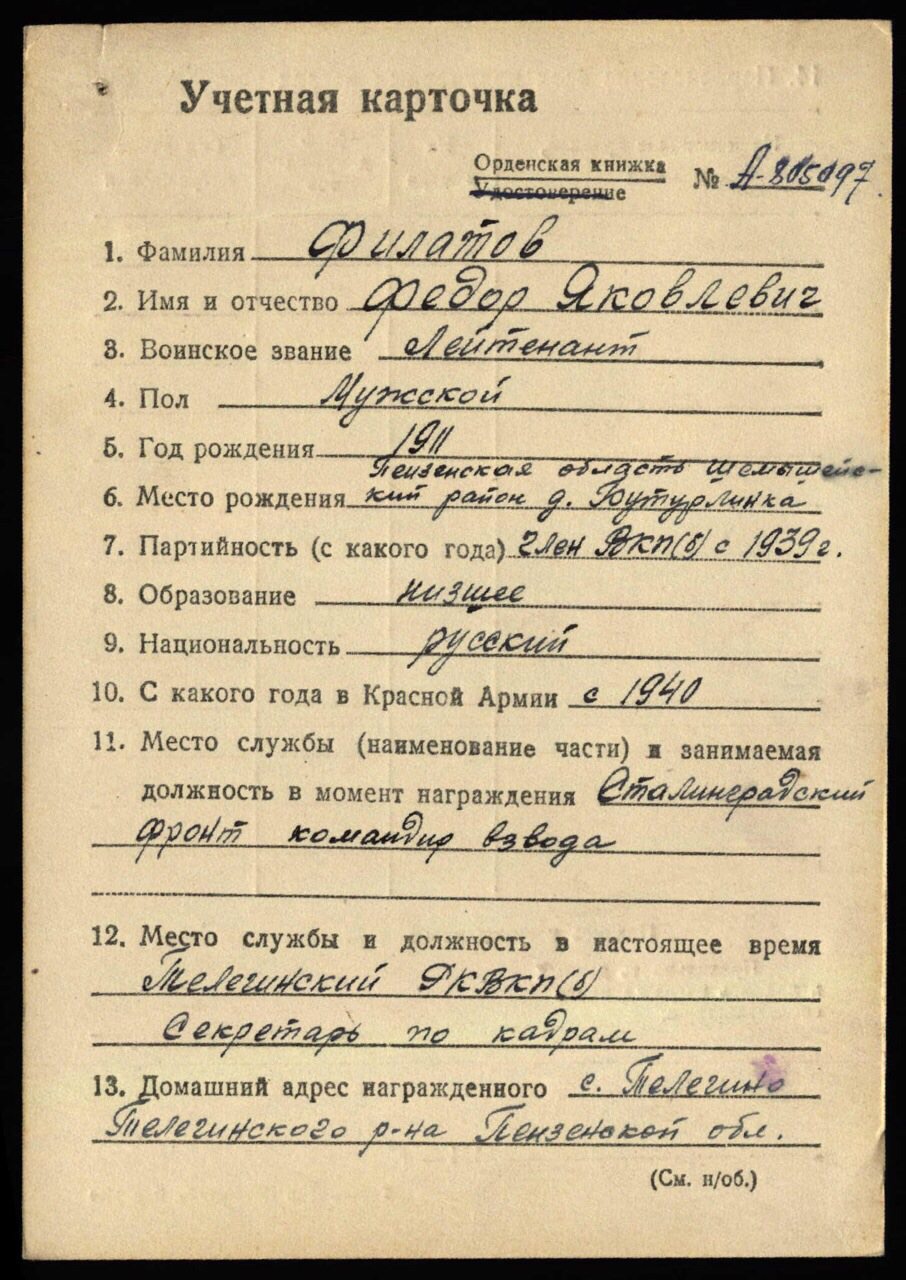 Учетная карточка
Орденская книжка
Удостоверение
№ А-805097
1. Фамилия Филатов
2. Имя и отчество Федор Яковлевич
3. Воинское звание Лейтенант
4. Пол Мужской
5. Год рождения 1911
Пензенская область Шемышейс-
6. Место рождения кий район д. Бутурлинка
7. Партийность (с какого года) член ВКП(б) с 1939 г.
8. Образование низшее
9. Национальность русский
10. С какого года в Красной Армии с 1940
11. Место службы (наименование части) и занимаемая
должность в момент награждения Сталинградский
фронт командир взвода
12. Место службы и должность в настоящее время
Телегинский РКВКП(б)
Секретарь по кадрам
13. Домашний адрес награжденного с. Телегино
Телегинского р-на Пензенской обл.
(См. н/об.)